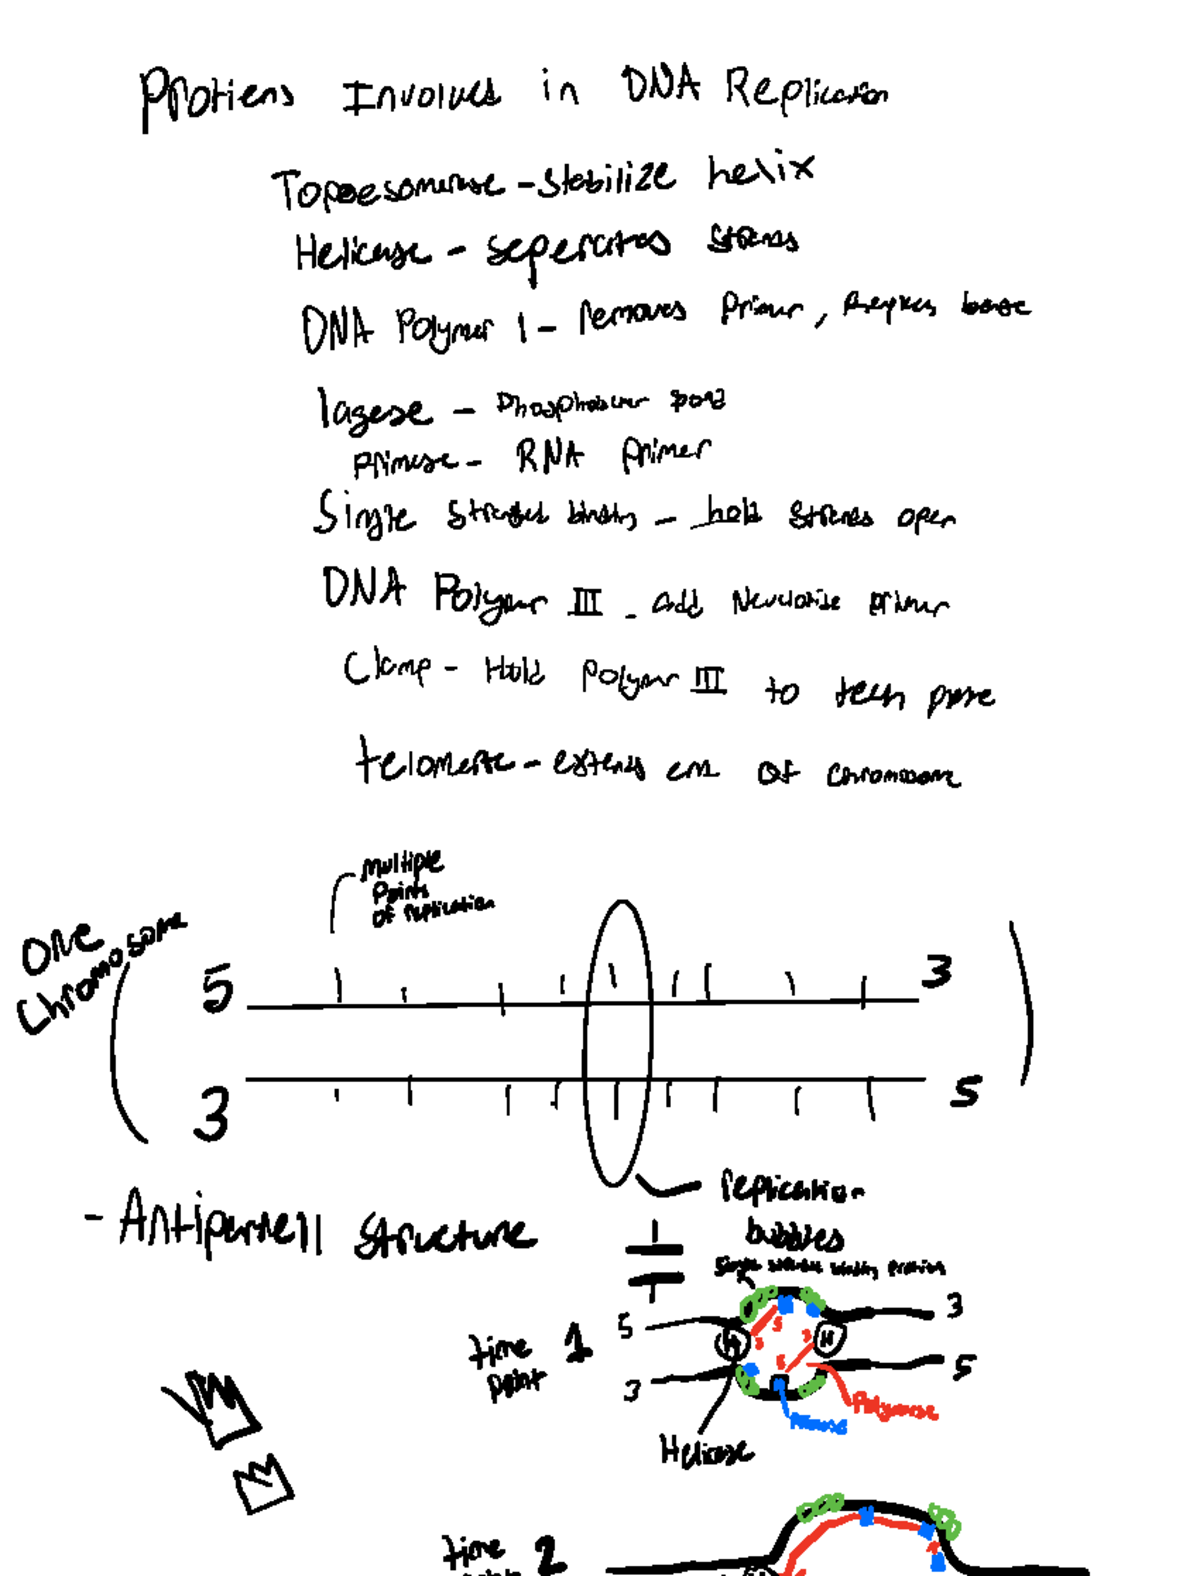 Protiens Involved in DNA Replication
Topoesomerase - Stabilize helix
Helicase - seperates strands
DNA Polymer 1 - removes Primer, base
lagese - bond
Primase - RNA Primer
Single Stranded binding - hold strands open
DNA Polymer III - add Primer
Clamp - Hold Polymer III to
telomerase - extends end of chromosome
multiple
Points
of replication
One
Chromosome
5 3
3 5
replication
bubbles
- Antiparrell structure
Single binding proteins
time 1
point
5 3
H H
5
3
3
5
3 5
Polymerase
Primase
Helicase
time 2